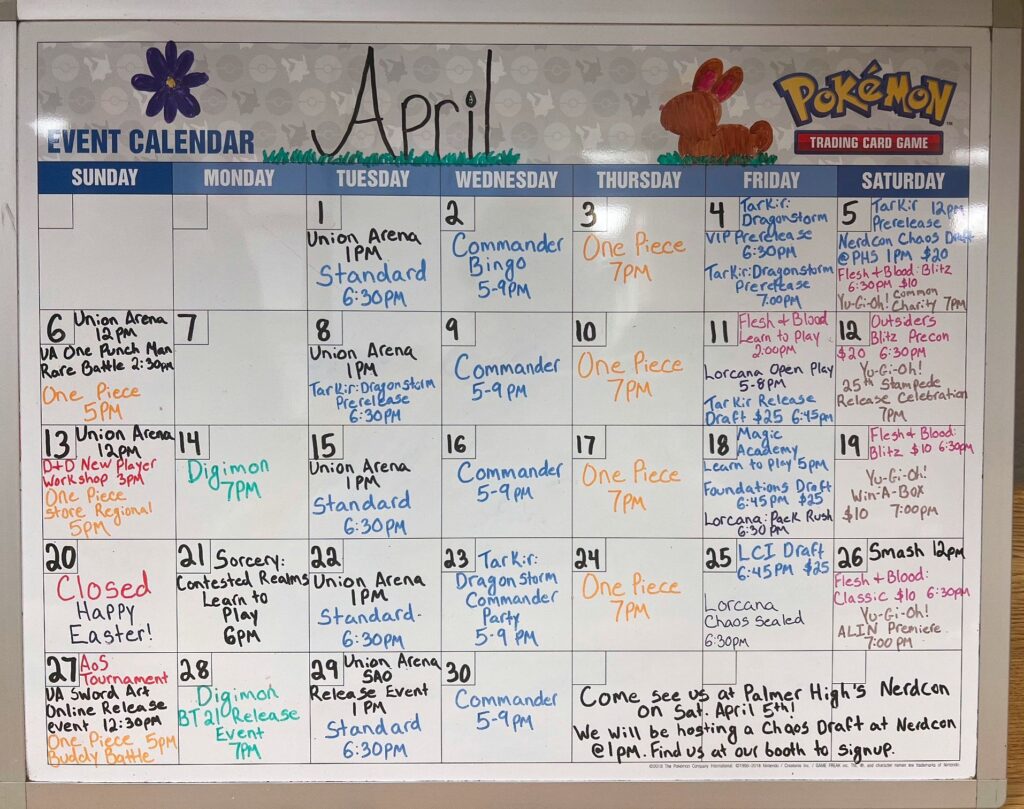 April
POKéMON
EVENT CALENDAR
TRADING CARD GAME
SUNDAY
MONDAY
TUESDAY
WEDNESDAY
THURSDAY
FRIDAY
SATURDAY
1
Union Arena
1PM
Standard
6:30PM
2
Commander
Bingo
5-9PM
3
One Piece
7PM
4 Tarkir:
Dragonstorm
VIP Prerelease
6:30PM
Tarkir: Dragonstorm
Prerelease
7:00PM
5 Tarkir 12pm
Prerelease
Nerdcon Chaos Draft
@PHS 1PM $20
Flesh + Blood: Blitz
6:30PM $10
Yu-Gi-Oh! Common
Charity 7PM
6 Union Arena
12PM
UA One Punch Man
Rare Battle 2:30pm
One Piece
5PM
7
8
Union Arena
1PM
Tarkir: Dragonstorm
Prerelease
6:30PM
9
Commander
5-9PM
10
One Piece
7PM
11 Flesh & Blood
Learn to Play
2:00PM
Lorcana Open Play
5-8PM
Tarkir Release
Draft $25 6:45pm
12 Outsiders
Blitz Precon
$20 6:30PM
Yu-Gi-Oh!
25th Stampede
Release Celebration
7PM
13 Union Arena
12PM
D+D New Player
Workshop 3PM
One Piece
Store Regional
5PM
14
Digimon
7PM
15
Union Arena
1PM
Standard
6:30PM
16
Commander
5-9PM
17
One Piece
7PM
18 Magic
Academy
Learn to Play 5pm
Foundations Draft
6:45PM $25
Lorcana: Pack Rush
6:30PM
19 Flesh & Blood:
Blitz $10 6:30pm
Yu-Gi-Oh!
Win-A-Box
$10 7:00pm
20
Closed
Happy
Easter!
21 Sorcery:
Contested Realms
Learn to
Play
6PM
22
Union Arena
1PM
Standard
6:30PM
23 Tarkir:
Dragonstorm
Commander
Party
5-9PM
24
One Piece
7PM
25 LCI Draft
6:45PM $25
Lorcana
Chaos Sealed
6:30PM
26 Smash 12pm
Flesh + Blood:
Classic $10 6:30pm
Yu-Gi-Oh!
ALIN Premiere
7:00PM
27 AoS
Tournament
UA Sword Art
Online Release
event 12:30PM
One Piece 5PM
Buddy Battle
28
Digimon
BT21 Release
Event
7PM
29 Union Arena
SAO
Release Event
1PM
Standard
6:30PM
30
Commander
5-9PM
Come see us at Palmer High's Nerdcon
on Sat. April 5th!
We will be hosting a Chaos Draft at Nerdcon
@1pm. Find us at our booth to signup.